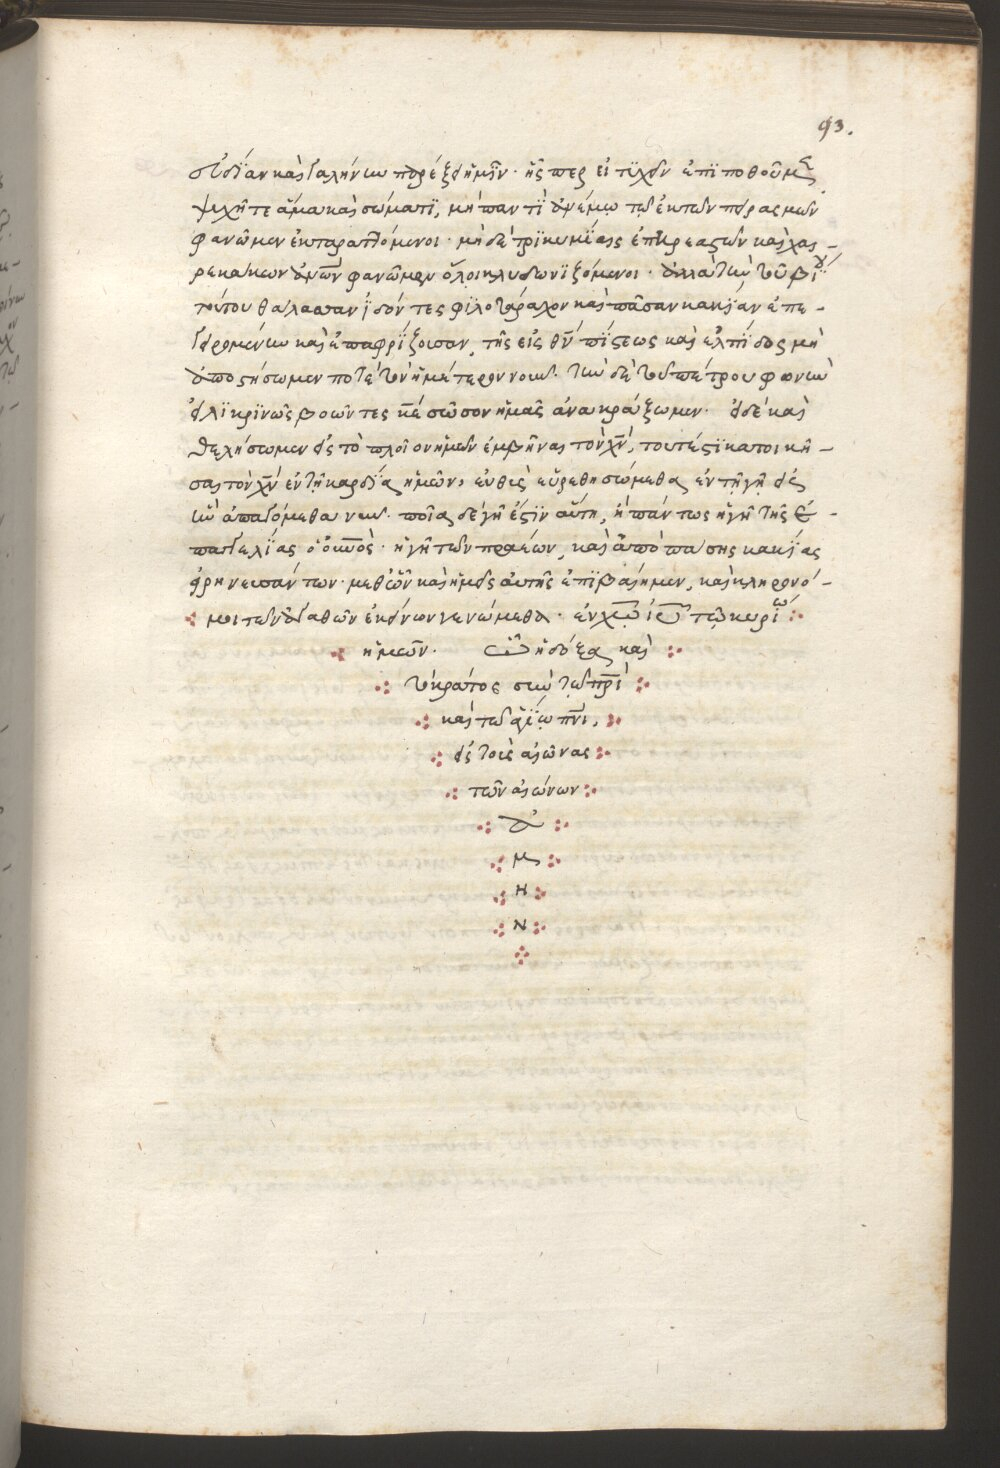 93.
εὐδίαν καὶ γαλήνην παρέξει ἡμῖν· ἧς περ εἰ τύχοι ἐπιποθοῦμεν
ψυχῆ τε ἅμα καὶ σώματϊ, μὴ παντὶ ἀνέμω τῶ ἐκ τῶν πειρασμῶν
φανῶμεν ἐκταραττόμενοι· μὴ δὲ τρϊκυμΐαις ἐπηρεαστῶν καὶ χαι-
ρεκάκων ἀνδρῶν φανῶμεν ὅλοι κλυδωνϊζόμενοι· ἀλλὰ τὴν τοῦ βΐου
τούτου θάλασσαν ἰδόντες φϊλοτάραχον καὶ πᾶσαν κακΐαν ἐπε-
γειρομένην καὶ ἐπαφρΐζουσαν, τῆς εἰς θν πΐστεως καὶ ἐλπΐδος μὴ
ἀποστήσωμεν ποτὲ τὸν ἡμέτερον νοῦν· τὴν δὲ τοῦ πέτρου φωνὴν
εἰλϊκρϊνῶς βοῶντες κε σῶσον ἡμᾶς ἀνακράξωμεν· εἰ δὲ καὶ
θελήσωμεν εἰς τὸ πλοῖον ἡμῶν ἐμβῆναι τὸν χν, τουτέστϊ κατοικῆ-
σαι τὸν χν ἐν τῆ καρδΐα ἡμῶν, εὐθὺς εὑρεθησώμεθα ἐν τῆ γῆ εἰς
ἣν ἀπαγόμεθα νῦν· ποία δὲ γῆ ἐστϊν αὕτη, ἢ πάντως ἡ γῆ τῆς ἐ-
παγγελΐας ὁ οὐνος· ἡ γῆ τῶν πραέων, καὶ ἀπὸ πάσης κακΐας
εἰρηνευσάντων· μεθ' ὧν καὶ ἡμεῖς αὐτῆς ἐπϊβαίημεν, καὶ κληρονό-
μοι τῶν ἀγαθῶν ἐκείνων γενώμεθα· ἐν χω ιυ τῶ κυρίω
ἡμῶν· ὧ ἡ δόξα καὶ
τὸ κράτος σὺν τῶ πρι
καὶ τῶ ἁγΐω πνι,
εἰς τοὺς αἰῶνας
τῶν αἰώνων
ἀ
μ
η
ν